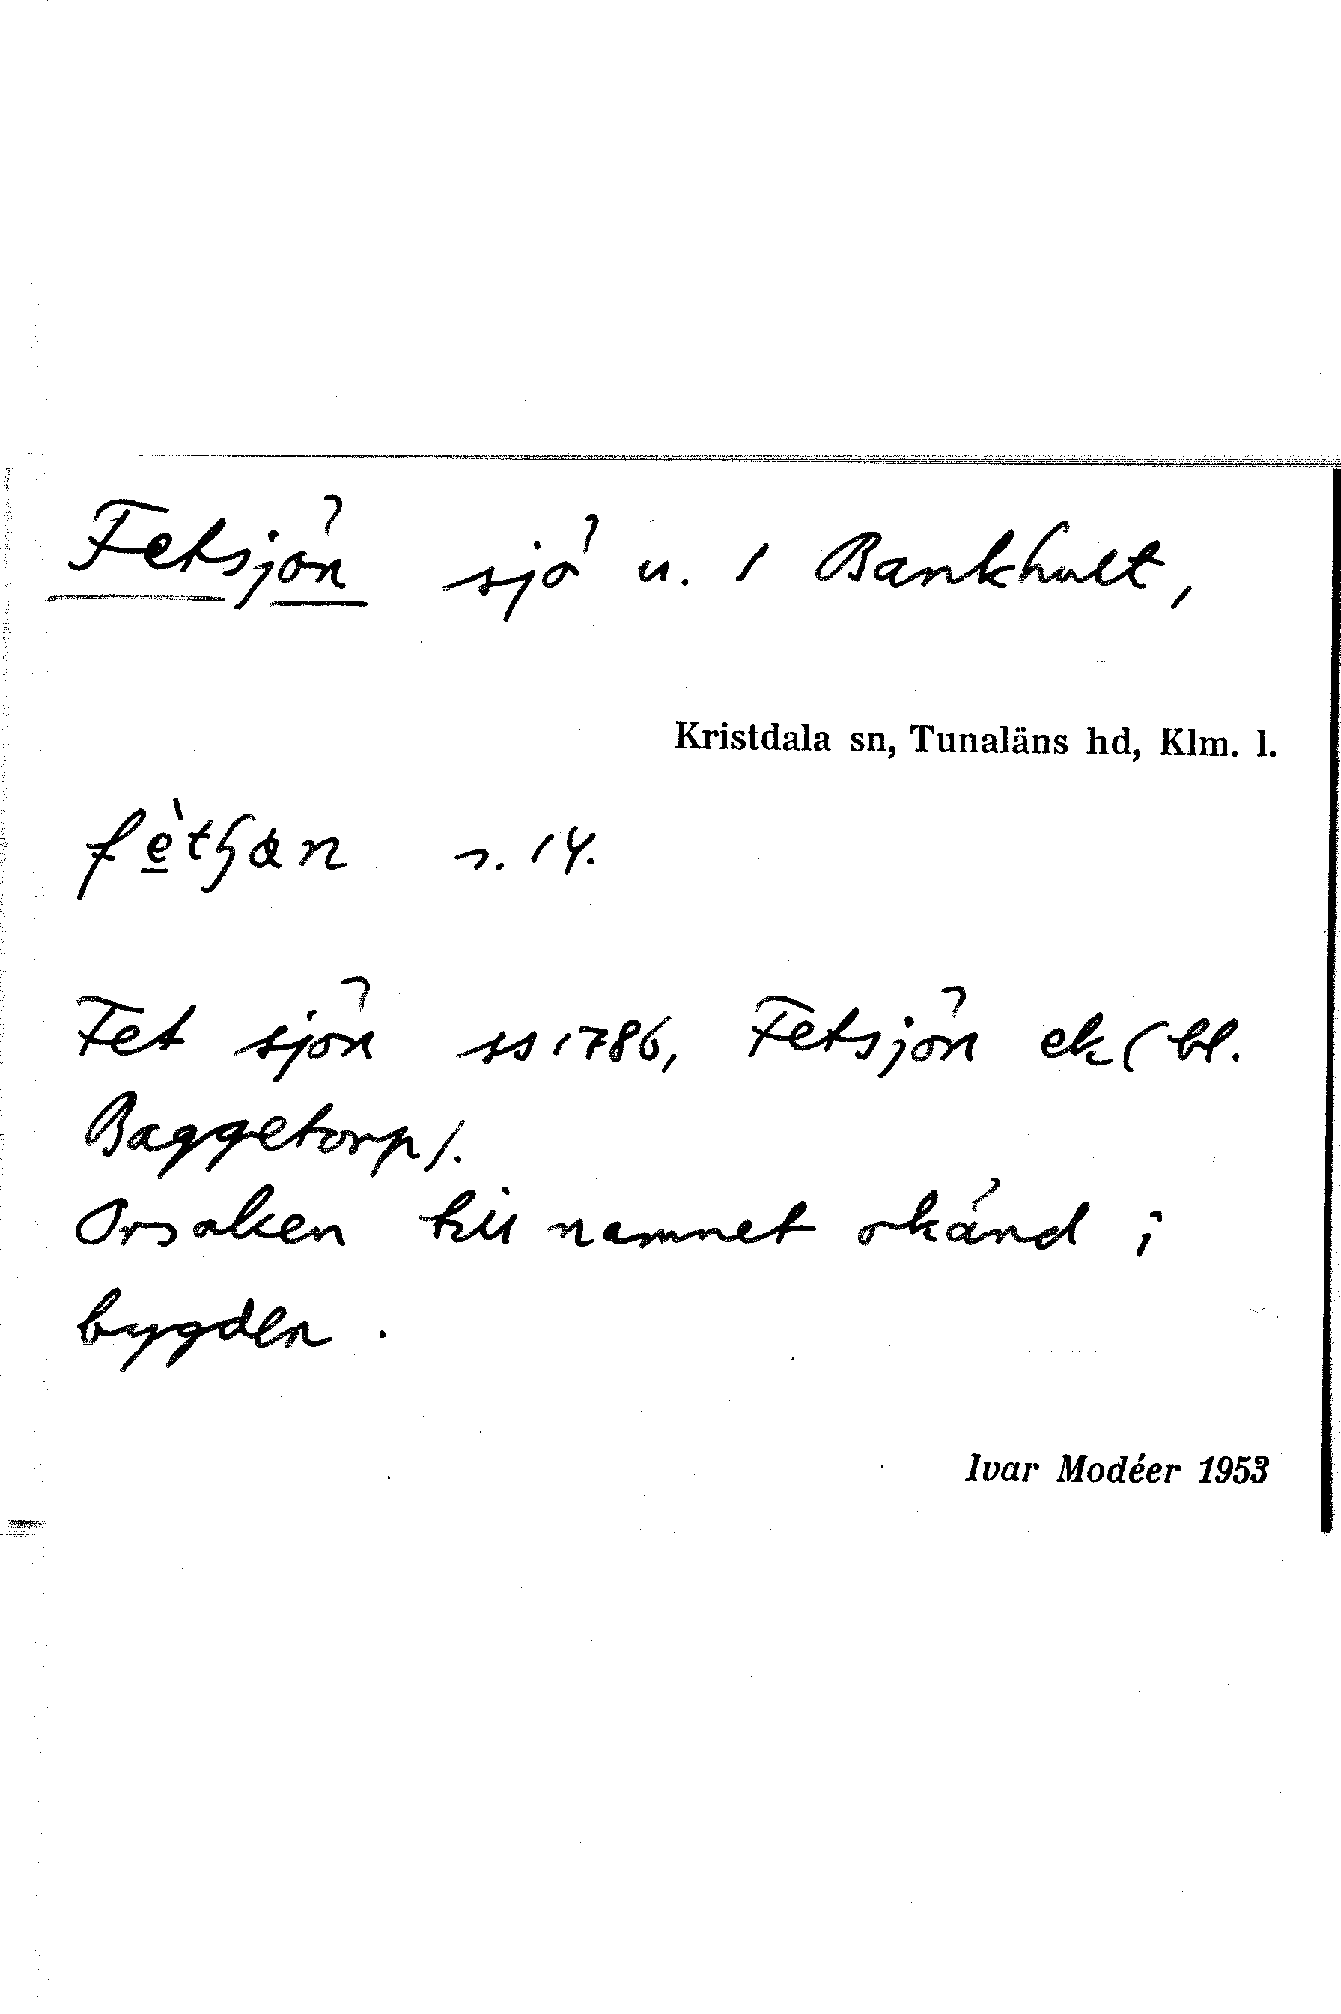 Fetsjön sjö u. 1 Bankhult,
Kristdala sn, Tunaläns hd, Klm. l.
s. 14.
Fet sjön ss 1786, Fetsjön ek (bl.
Baggetorp).
Orsaken till namnet okänd i
bygden.
Ivar Modéer 1953